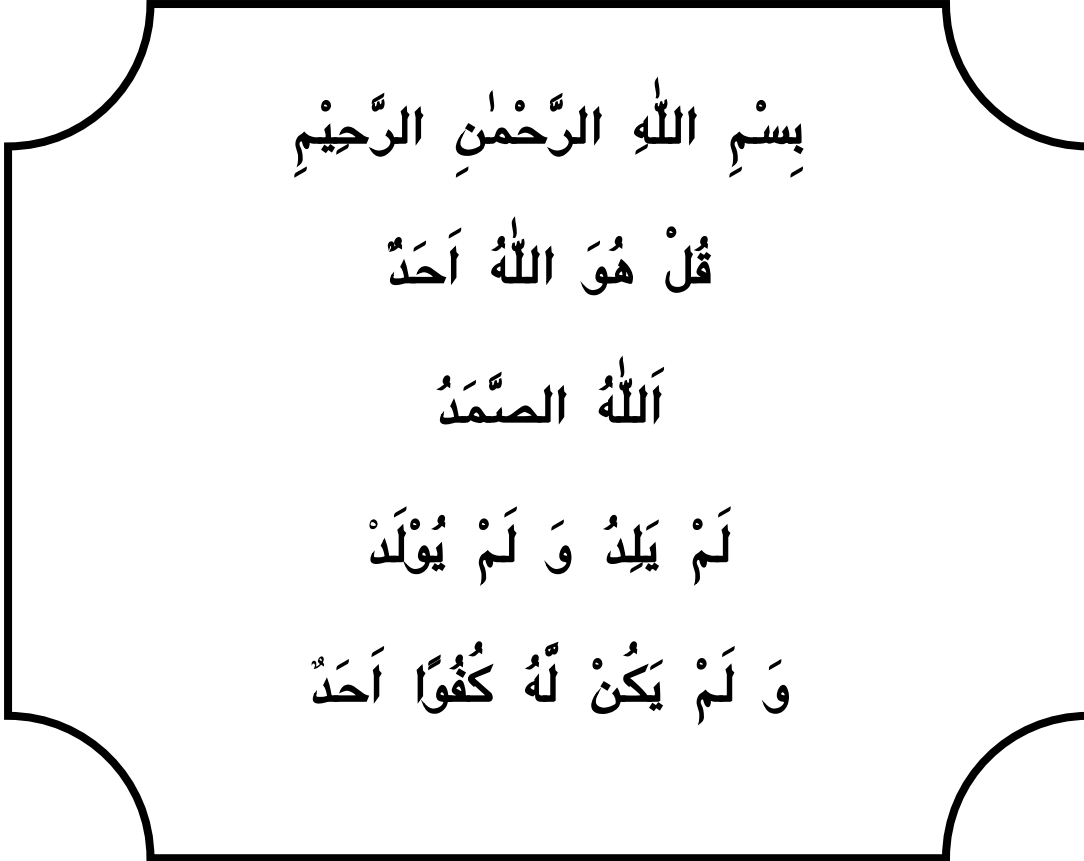 بِسْمِ اللّٰهِ الرَّحْمٰنِ الرَّحِيْمِ
قُلْ هُوَ اللّٰهُ اَحَدٌ
اَللّٰهُ الصَّمَدُ
لَمْ يَلِدُ وَ لَمْ يُوْلَدْ
وَ لَمْ يَكُنْ لَّهُ كُفُوًا اَحَدٌ